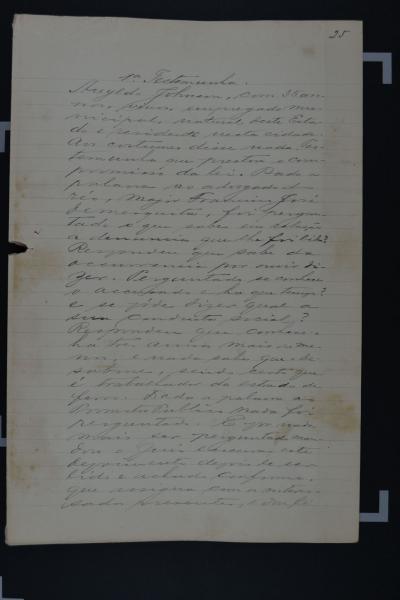 25
1ª Testemunha.
Johnson, com 36 an-
nos, viuvo, empregado mu-
nicipal, natural deste Esta-
do e residente nesta cidade.
Aos costumes disse nada. Tes-
temunha que prestou o com-
promisso da lei. Dada a
palavra ao advogado do
réo, Major Francisco José
foi pergun-
tado o que sabe em relação
a denuncia que lhe foi lida?
Respondeu que sabe da
occurrencia por ouvir di-
zer. Perguntado, se conhece
o accusado e ha que tempo?
e se póde dizer qual a
sua conducta social?
Respondeu que conhece
ha tres annos mais ou me-
nos, e nada sabe que o de-
sabone, sendo certo que
é trabalhador da estrada de
ferro. Dada a palavra ao
Promotor Publico nada foi
perguntado. E por nada
mais ser perguntado man-
dou o Juiz encerrar este
depoimento depois de ser
lido e achado conforme,
que assigna com os interes-
sados presentes, e dou fé